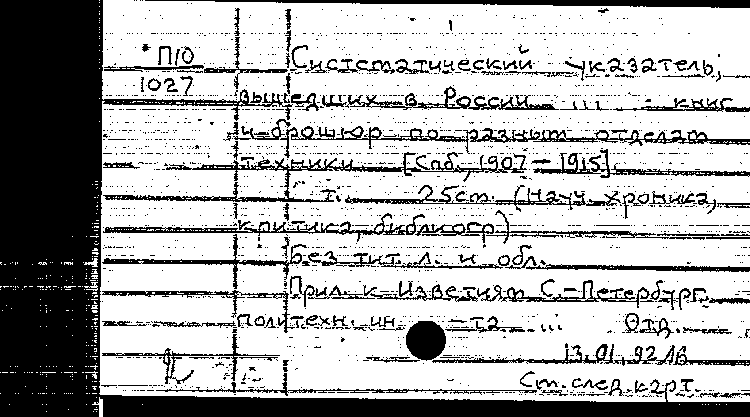 П10
1027
Систематический указатель,
вышедших в России ... книг
и брошюр по разным отделам
техники [Спб., 1907 — 1915].
т. 25см. (Науч. хроника,
критика, библиогр)
Без тит. л. и обл.
Прил. к Известиям С.-Петербург.
политехн. ин-та ... Отд.
13.01.92 АБ
См. след. карт.